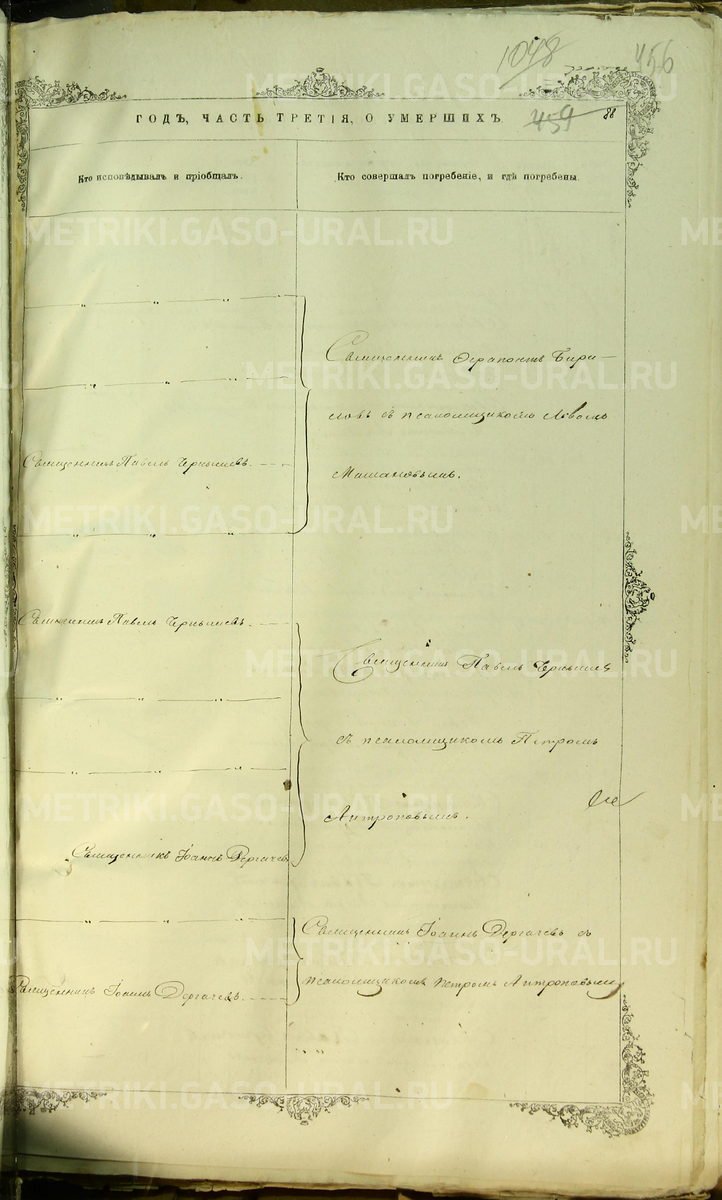 1048
456
ГОДЪ, ЧАСТЬ ТРЕТІЯ, О УМЕРШИХЪ.
459
88
Кто исповѣдывалъ и пріобщалъ.
Кто совершалъ погребеніе, и гдѣ погребены.
Священникъ Ѳерапонтъ Бири-
ловъ съ псаломщикомъ Львомъ
Священникъ Павелъ Чернышевъ.
Священникъ Павелъ Чернышевъ.
Священникъ Павелъ Чернышевъ
съ псаломщикомъ Петромъ
Антроповымъ.
Священникъ Іоаннъ Дергачевъ
Священникъ Іоаннъ Дергачевъ съ
псаломщикомъ Петромъ Антроповымъ
Священникъ Іоаннъ Дергачевъ.
METRIKI.GASO-URAL.RU